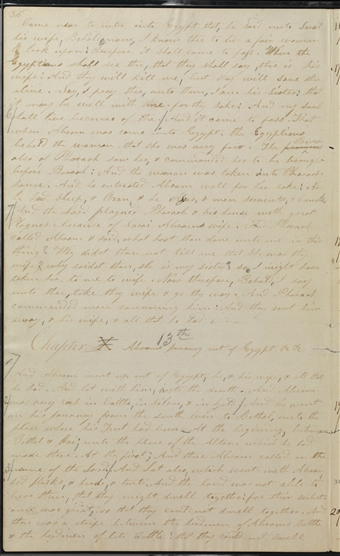 36
Came near to enter into Egypt that, he said unto Sarai
his wife, Behold now, I know thou art a fair woman
to look upon: Therefore it shall come to pass, When the
Egyptians shall see thee, that they shall say, this is his
wife: And they will kill me, but they will save thee
alive. Say, I pray thee, unto them, I am his sister: that
it may be well with me for thy sake; And my soul
shall live because of thee. And it came to pass That
when Abram was come into Egypt, the Egyptians
beheld the woman that she was very fair. The
also of Pharaoh saw her, & commanded her to be brought
before Pharaoh: And the woman was taken into Pharaoh
house. And he entreated Abram well for her sake: &
he had Sheep, & Oxen, & he asses, & men servants, &
And the Lord plagued Pharaoh & his house with great
Plagues because of Sarai Abrams wife. And Pharaoh
called Abram & said, what hast thou done unto me in this
thing? Why didst thou not tell me that she was thy
wife? why saidst thou, she is my sister? so I might have
taken her to me to wife. Now therefore, Behold, I say
unto thee, take thy wife & go thy way. And Pharaoh
commanded men concerning him: And they sent him
away, & his wife, & all that he had
Chapter 13th Abrams journey out of Egypt &c &c
And Abram went up out of Egypt, he, & his wife, & all that
he had. And Lot with him, into the south. And Abram
was very rich in Cattle, in silver, & in gold; And he went
on his journey from the south even to Bethel, unto the
place where his tent had been at the beginning, between
Bethel & Hai; unto the place of the Altar, which he had
made there at the first; And there Abram called on the
name of the Lord. And Lot also, which went with Abram
had flocks, & herds, & tents. And the land was not able to
bear them, that they might dwell together: for their substance
was great, so that they could not dwell together. And
there was a strife between the herdmen of Abrams Cattle
& the herdmen of Lots Cattle: And they could not dwell